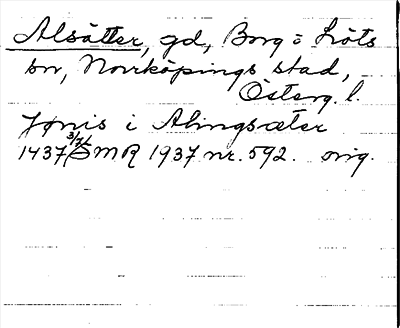 Alsätter, gd, Borg o Löts
sn, Norrköpings stad,
Österg. l.
Jønis i Alingsæter
1437 3/7 SMR 1937 nr. 592. orig.